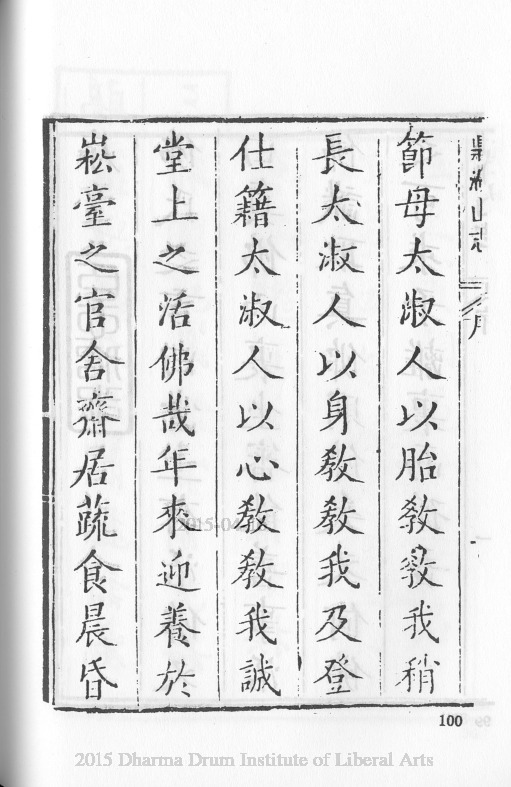 鼎湖山志
節母太淑人以胎教教我稍
長太淑人以身教教我及登
仕籍太淑人以心教教我誠
堂上之活佛哉年來迎養於
崧臺之官舍齋居蔬食晨昏
100
2015 Dharma Drum Institute of Liberal Arts